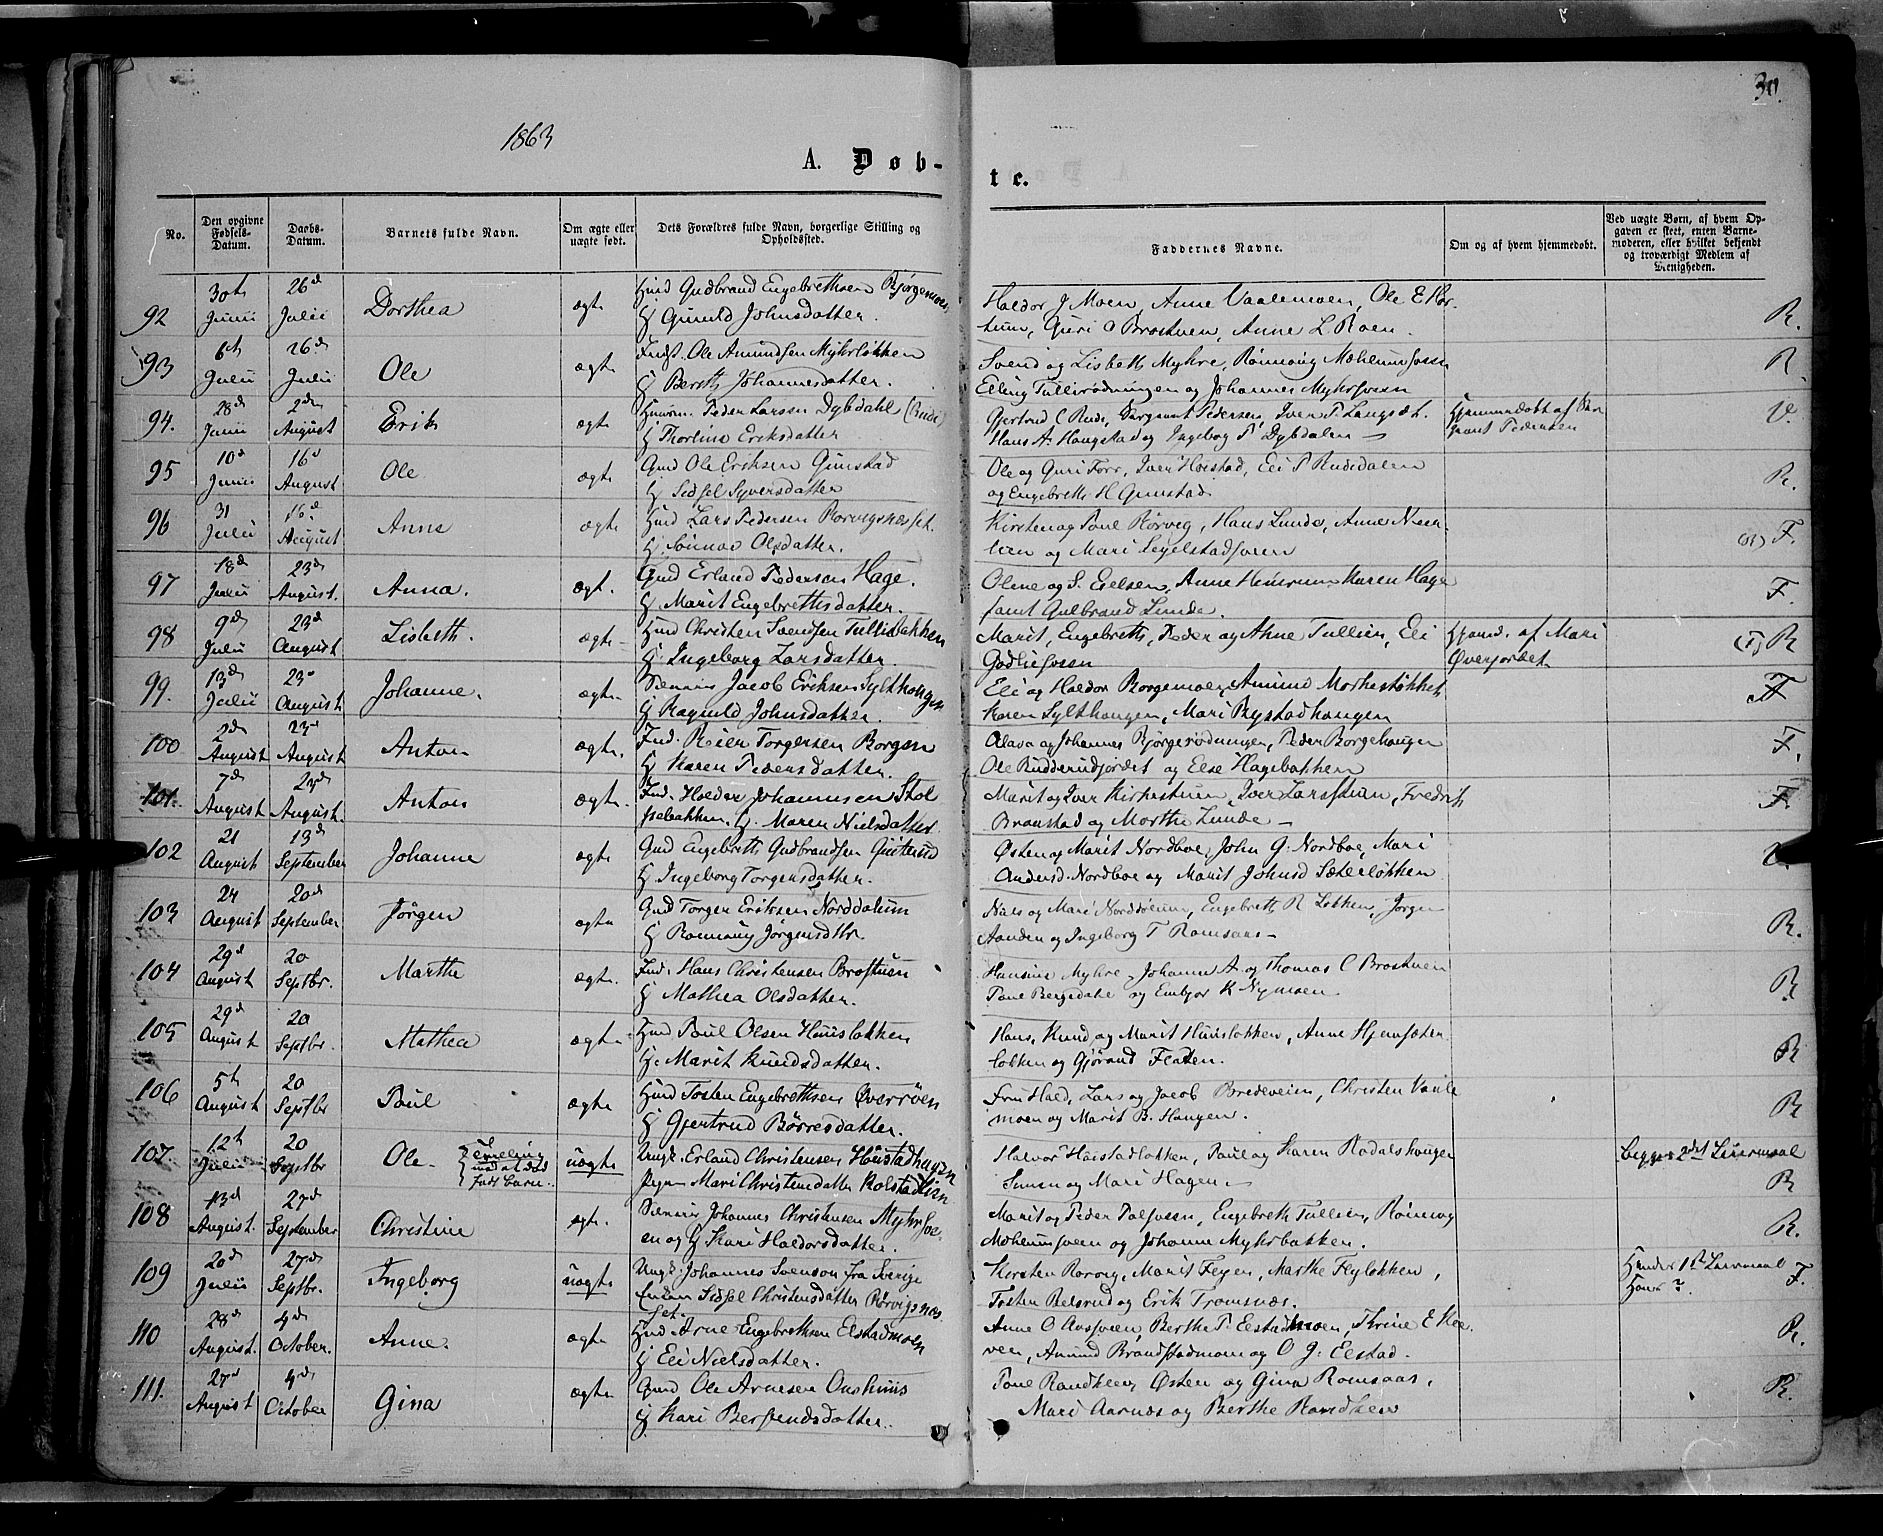 30.
1863
A. Døb-
te.
No.
Den opgivne Fødsels-Datum.
Daabs-Datum.
Barnets fulde Navn.
Om ægte eller uægte født.
Dets Forældres fulde Navn, borgerlige Stilling og Opholdssted.
Faddernes Navne.
Om og af hvem hjemmedøbt.
Ved uægte Børn, af hvem Opgaven er skeet, enten Barnemoderen, eller hvilket bekjendt og troværdigt Medlem af Menigheden.
92 30te Junii 26de Julii Dorthea ægte Huusmd Gudbrand Engebrethsen Bjørgemoen
Hj Gunild Johnsdatter.
Haldor J Moen, Anne Vaalemoen, Ole E Kortum, Guri O Brostuen, Anne L Roen. R.
93 6te Julii 26de Julii Ole ægte Inds. Ole Amundsen Myhrløkken
Hj Berethe Johannesdatter.
Svend og Lisbeth Myhre, Rønnoug
Elling Tullirødningen og Johannes Myhrsveen R
94. 28de Junii 2den August Erik ægte Peder Larsen Dybdahl (Rude)
Hj Thorline Eriksdatter
Gjertrud C Rude, Sargeant Pedersen, Iver P Langsæt.
Hans A. Haugstad og Ingebog P. Dybdalen
Hjemmedøbt af Sargeant Pedersen V.
95 10de Junii 16de August Ole ægte Gmd Ole Eriksen Gunstad
Hj Sidsel Syversdatter
Ole og Guri Forr, Iver Hoistad, Eli P Rudsdalen
og Engebreth H Gunstad. R.
96 31 Julii 16de August Anne ægte Hmd Lars Pedersen Rorvignæsset.
Hj Olsdatter.
Kirsten og Pone Rørvig, Hans Lunde, Anne
og Mari Segelstadsveen (R) F.
97 18de Julii 23de August. Anna. ægt. Gmd Erland Pedersen Hage.
Hj. Marit Engebrethsdatter.
Oline og S. Eielsen, Anne Heierem Karen Hage
samt Gulbrand Lunde. F.
98 9de Julii 23de August Lisbeth. ægte Hmd Christen Svendsen Tullibakken
Hj. Ingeborg Larsdatter.
Marit, Engebreth, Peder og Anne Tullien, Eli
Godlisveen
Hjemd. af Mari Øverjordet (F) R
99. 13de Julii 23de August Johanne. ægte Jacob Eriksen Sylthaugen
Hj Ragnild Johnsdatter.
Eli og Haldor Borgemoen, Amund Morkestøkket
Karen Sylthaugen, Mari Brystadhaugen F
100 2de August 23de August Anton ægte. Ind. Reier Torgersen Borgen
Hj Karen Pedersdatter.
Olava og Johannes Bjørgerødningen, Peder Borgehaugen
Ole Rudderudjordet og Else Hagebakken F.
101. 7de August 23de August. Anton ægte. Ind. Haldor Johannesen Stolssebakken. Hj. Maren Nielsdatter.
Marit og Iver Kirkestuen, Iver Larsstuen, Fredrik
Braastad og Marthe Lunde F.
102 21 August 13de September Johanne ægte Gmd Engebreth Gudbrandsen Gisterud
Hj Ingeborg Torgersdatter.
Østen og Marit Nordboe, John G. Nordboe, Mari
Andersd. Nordboe og Marit Johnsd Sæterløkken V.
103 24 August 20de September Jørgen ægte Gmd Torger Eriksen Norddalum
Hj Rønnoug Jørgensdtr.
Niels og Mari Norddølum, Engebreth R Løkken, Jørgen
Aanden og Ingeborg T Romsaas R.
104 29de August 20 Septbr. Marthe ægte. Ind. Hans Christensen Brostuen
Hj Mathea Olsdatter.
Hansine Myhre, Johanne A og Thomas C Brostuen
Pone Bergedahl og Embjør K Nymoen R
105 29de August 20 Septbr. Mathea ægte Hmd Paul Olsen Huusløkken
Hj. Marit Knudsdatter.
Hans, Knud og Marit Huusløkken, Anne Hjemsæterløkken og Gjørand Flaten. R
106 5te August 20 Septbr Paul ægte Hmd Tosten Engebrethsen Øverrøen
Hj Gjertrud Børresdatter.
Fru Hald, Lars og Jacob Bredeveien, Christen Vaalemoen og Marit B. Haugen. R
107 12te Julii 20 Septbr Ole. {Tvilling med et død født barn. uægte Ungk. Erland Christensen Huustadhagen
Pigen Mari Christensdatter Kolstadlien
Halvor Huustadløkken, Paul og Karen Rodalshaugen
Simen og Mari Hagen.
Begges 2det Leiermaal R
108 13de August. 27de September Christine ægte. Johannes Christensen Myhrsveen og Hj Kari Haldorsdatter.
Marit og Peder Dalsveen, Engebreth Tullien, Rønnog
og Johanne Myhrbakken. R.
109 20de Julii 27de Septbr. Ingeborg uægte Ungk. Johannes Svenson fra Sverige
Enken Sidsel Christensdatter Rørvignæsset.
Kersten Rørvig, Marit Flyen, Marthe Flyløkken,
Tosten Belsrud og Erik Tromsnæs.
Hendes 1ste Leiermaal
Hans ? F.
110 28de August. 4de October. Anne. ægte Hmd Arne Engebrethsen Elstadmoen
Hj Eli Nielsdatter.
Anne O Aassveen, Berthe P. Elstadmoen, Thrine E Kleven, Amund Brandstadmoen og O G. Elstad. R.
111. 27de August 4de October Gina ægte Gmd Ole Arnesen Onshuus
Hj Kari Bersvendsdatter.
Pone Randklev, Østen og Gina Romsaas,
Mari Aarnes og Berthe Randklev R.